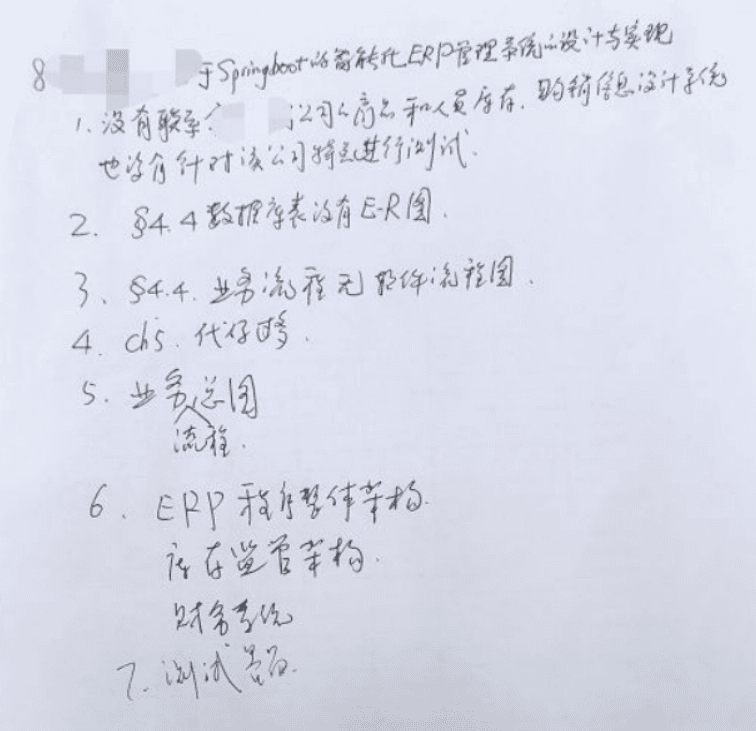 8 于Springboot的智能化ERP管理系统的设计与实现
1. 没有联系 公司的商品和人员库存、购销信息设计系统
也没有针对该公司特点进行测试.
2. §4.4 数据库表没有E-R图.
3、§4.4. 业务流程无软件流程图.
4. ch5. 代码过多.
5. 业务总图
流程.
6. ERP 程序整体架构.
库存监管架构.
财务系统
7. 测试